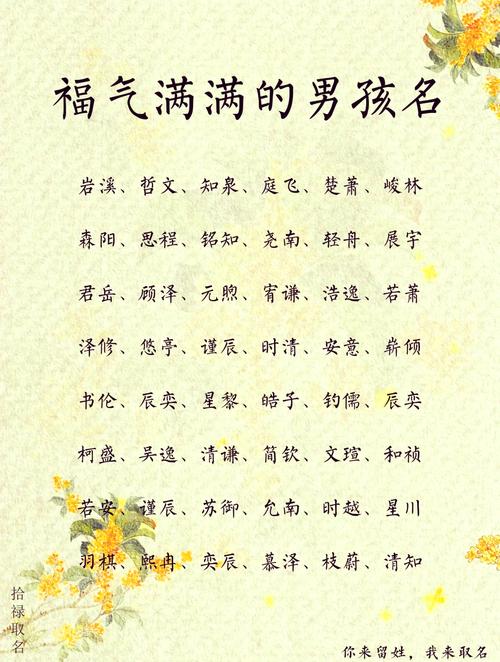 福气满满的男孩名
岩溪、哲文、知泉、庭飞、楚萧、峻林
森阳、思程、铭知、尧南、轻舟、展宇
君岳、顾泽、元煦、宥谦、浩逸、若萧
泽修、悠亭、谨辰、时清、安意、崭倾
书伦、辰奕、星黎、皓子、钓儒、辰奕
柯盛、吴逸、清谦、简钦、文瑄、和祯
若安、谨辰、苏御、允南、时越、星川
羽棋、熙冉、奕辰、慕泽、枝蔚、清知
拾禄取名
你来留姓，我来取名